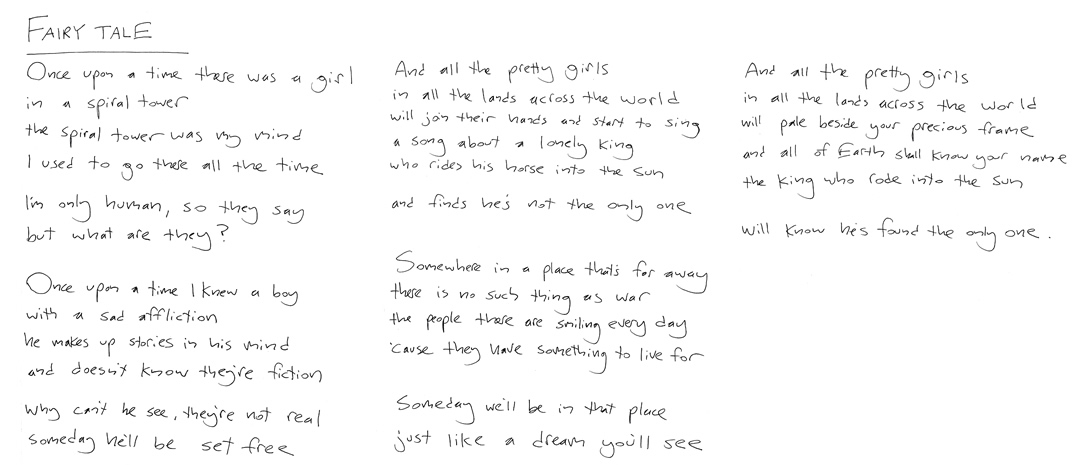 FAIRY TALE
Once upon a time there was a girl
in a spiral tower
the spiral tower was my mind
I used to go there all the time
I'm only human, so they say
but what are they?
Once upon a time I knew a boy
with a sad affliction
he makes up stories in his mind
and doesn't know they're fiction
why can't he see, they're not real
someday he'll be set free
And all the pretty girls
in all the lands across the world
will join their hands and start to sing
a song about a lonely king
who rides his horse into the sun
and finds he's not the only one
Somewhere in a place that's far away
there is no such thing as war
the people there are smiling every day
'cause they have something to live for
Someday we'll be in that place
just like a dream you'll see
And all the pretty girls
in all the lands across the world
will pale beside your precious frame
and all of Earth shall know your name
the king who rode into the sun
will know he's found the only one.